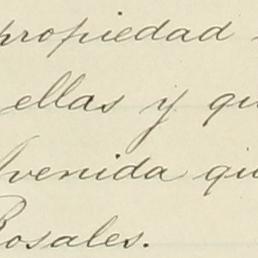 propiedad
ellas y qu
Avenida qu
Rosales.